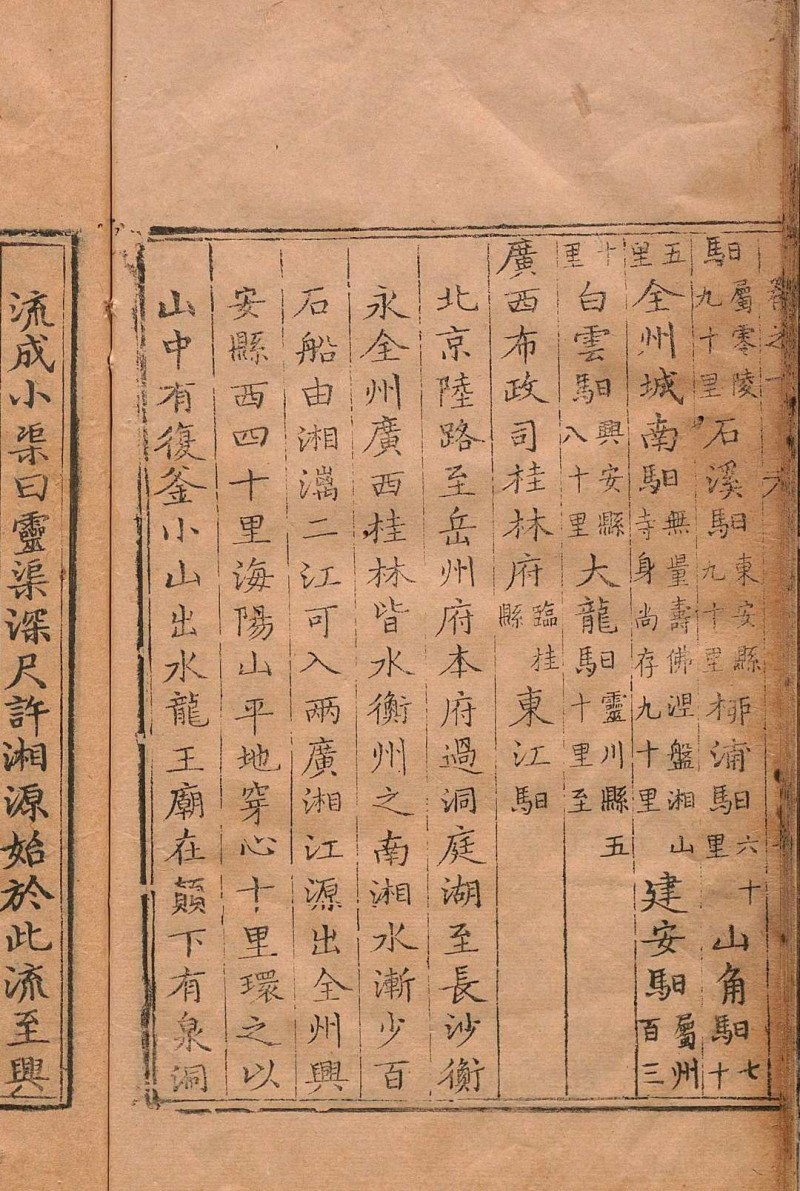 馹屬零陵九十里石溪馹東安縣九十里桺浦馹六十里山角馹七十
五里全州城南馹無量壽佛涅盤湘山寺身尚存九十里建安馹屬州百三
十里白雲馹興安縣八十里大龍馹靈川縣五十里至
廣西布政司桂林府臨桂縣東江馹
北京陸路至岳州府本府過洞庭湖至長沙衡
永全州廣西桂林皆水衡州之南湘水漸少百
石船由湘漓二江可入兩廣湘江源出全州興
安縣西四十里海陽山平地穿心十里環之以
山中有復釜小山出水龍王廟在顛下有泉洞
流成小渠曰靈渠深尺許湘源始於此流至興